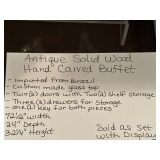 Antique Solid Wood
Hand Carved Buffet
- Imported from Brazil
- Custom made glass top
- Two(2) doors with Two(2) shelf storage
- Three(3) drawers for storage
- one(1) key for both pieces
72½" width
24" Depth
32¼" Height
Sold as Set
with Display